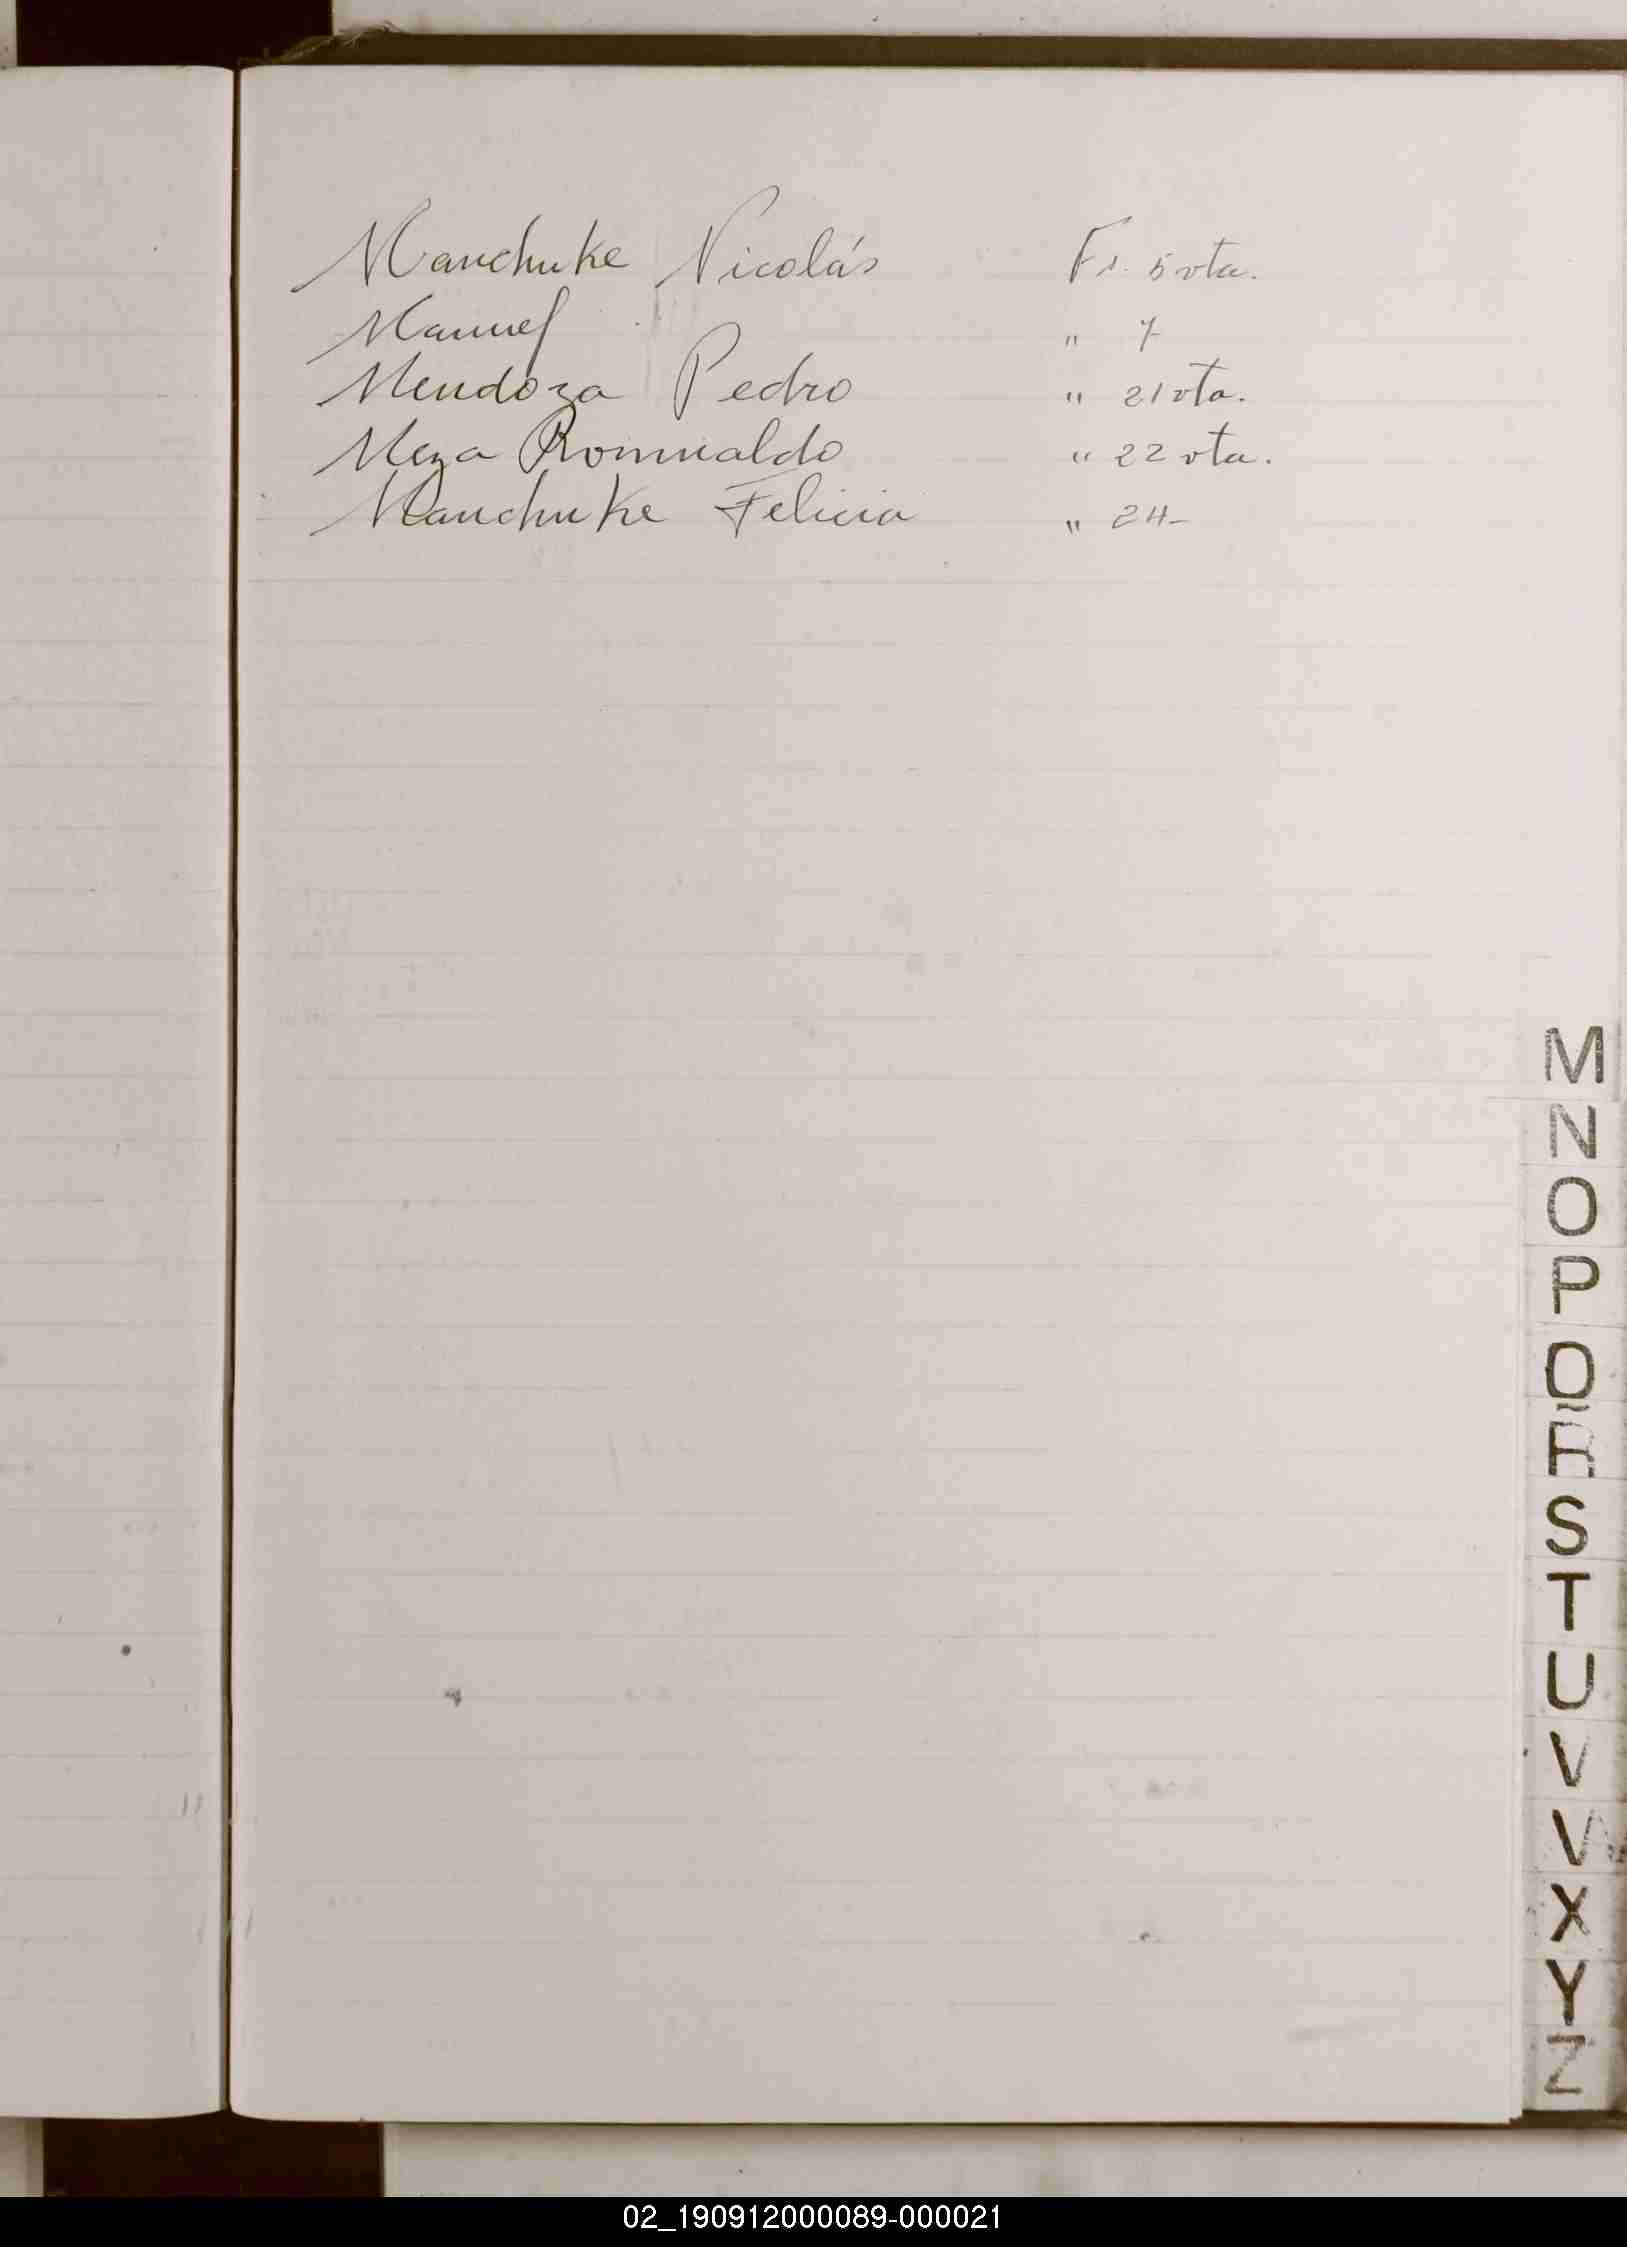 Manchuke Nicolás Fs. 5 vta.
Manuel " 7
Mendoza Pedro " 21 vta.
Meza Romualdo " 22 vta.
Manchuke Felicia " 24-
M
N
O
P
Q
R
S
T
U
V
W
X
Y
Z
02_190912000089-000021